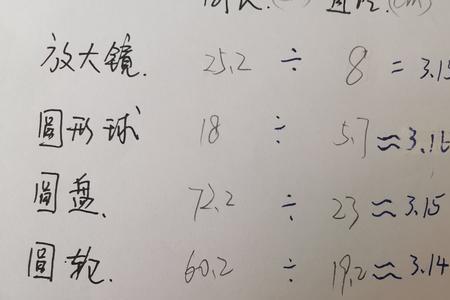 放大镜. 25.2 ÷ 8 = 3.15
圆形球 18 ÷ 5.7 ≈ 3.16
圆盘. 72.2 ÷ 23 ≈ 3.15
圆 60.2 ÷ 19.2 ≈ 3.14